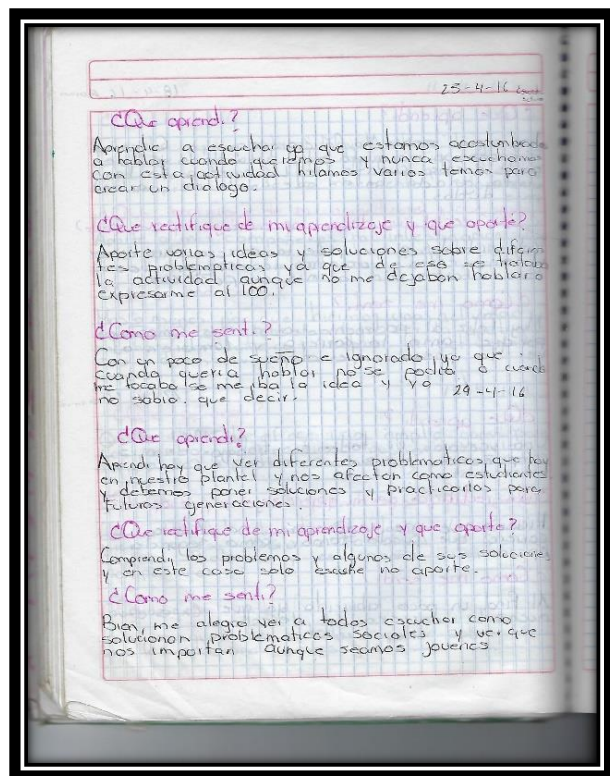 25-4-16
¿Que aprendi?
Aprendia a escuchar ya que estamos acostumbrada
a hablar cuando queremos y nunca escuchamos
con esta actividad hilamos varios temas para
crear un dialogo.
¿Que rectifique de mi aprendizaje y que aporté?
Aporte varias ideas y soluciones sobre diferen
tes problematicas ya que de eso se trataba
la actividad aunque no me dejaban hablar o
expresarme al 100.
¿Como me senti?
Con un poco de sueño e ignorado ya que
cuando queria hablar no se podia o cuando
me tocaba se me iba la idea y yo
no sabia que decir.
29-4-16
¿Que aprendi?
Aprendi hoy que ver diferentes problematicas que hay
en nuestro plantel y nos afectan como estudiantes
y debemos poner soluciones y practicarlos para
futuras generaciones.
¿Que rectifique de mi aprendizaje y que aporte?
Comprendi los problemas y algunos de sus soluciones
y en este caso solo escuche no aporte.
¿Como me senti?
Bien, me alegro ver a todos escuchar como
solucionan problematicas sociales y ver que
nos importan aunque seamos jovenes